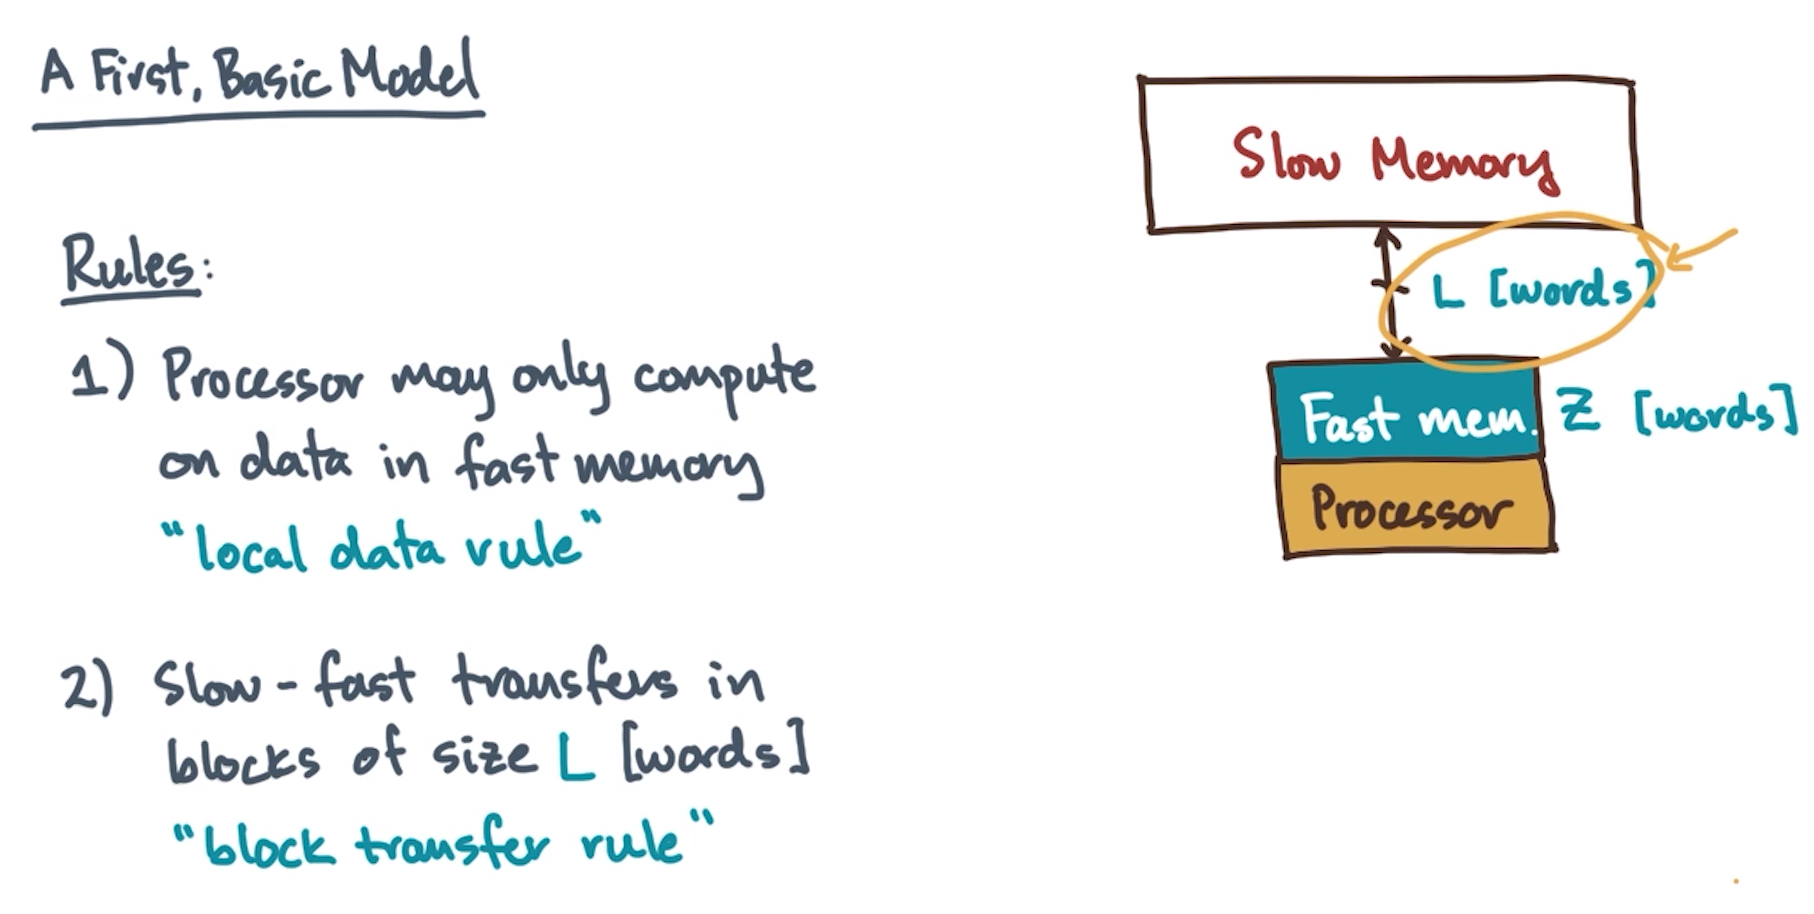 A First, Basic Model
Rules:
1) Processor may only compute
on data in fast memory
"local data rule"
2) Slow-fast transfers in
blocks of size L [words]
"block transfer rule"
Slow Memory
L [words]
Fast mem. Z [words]
Processor